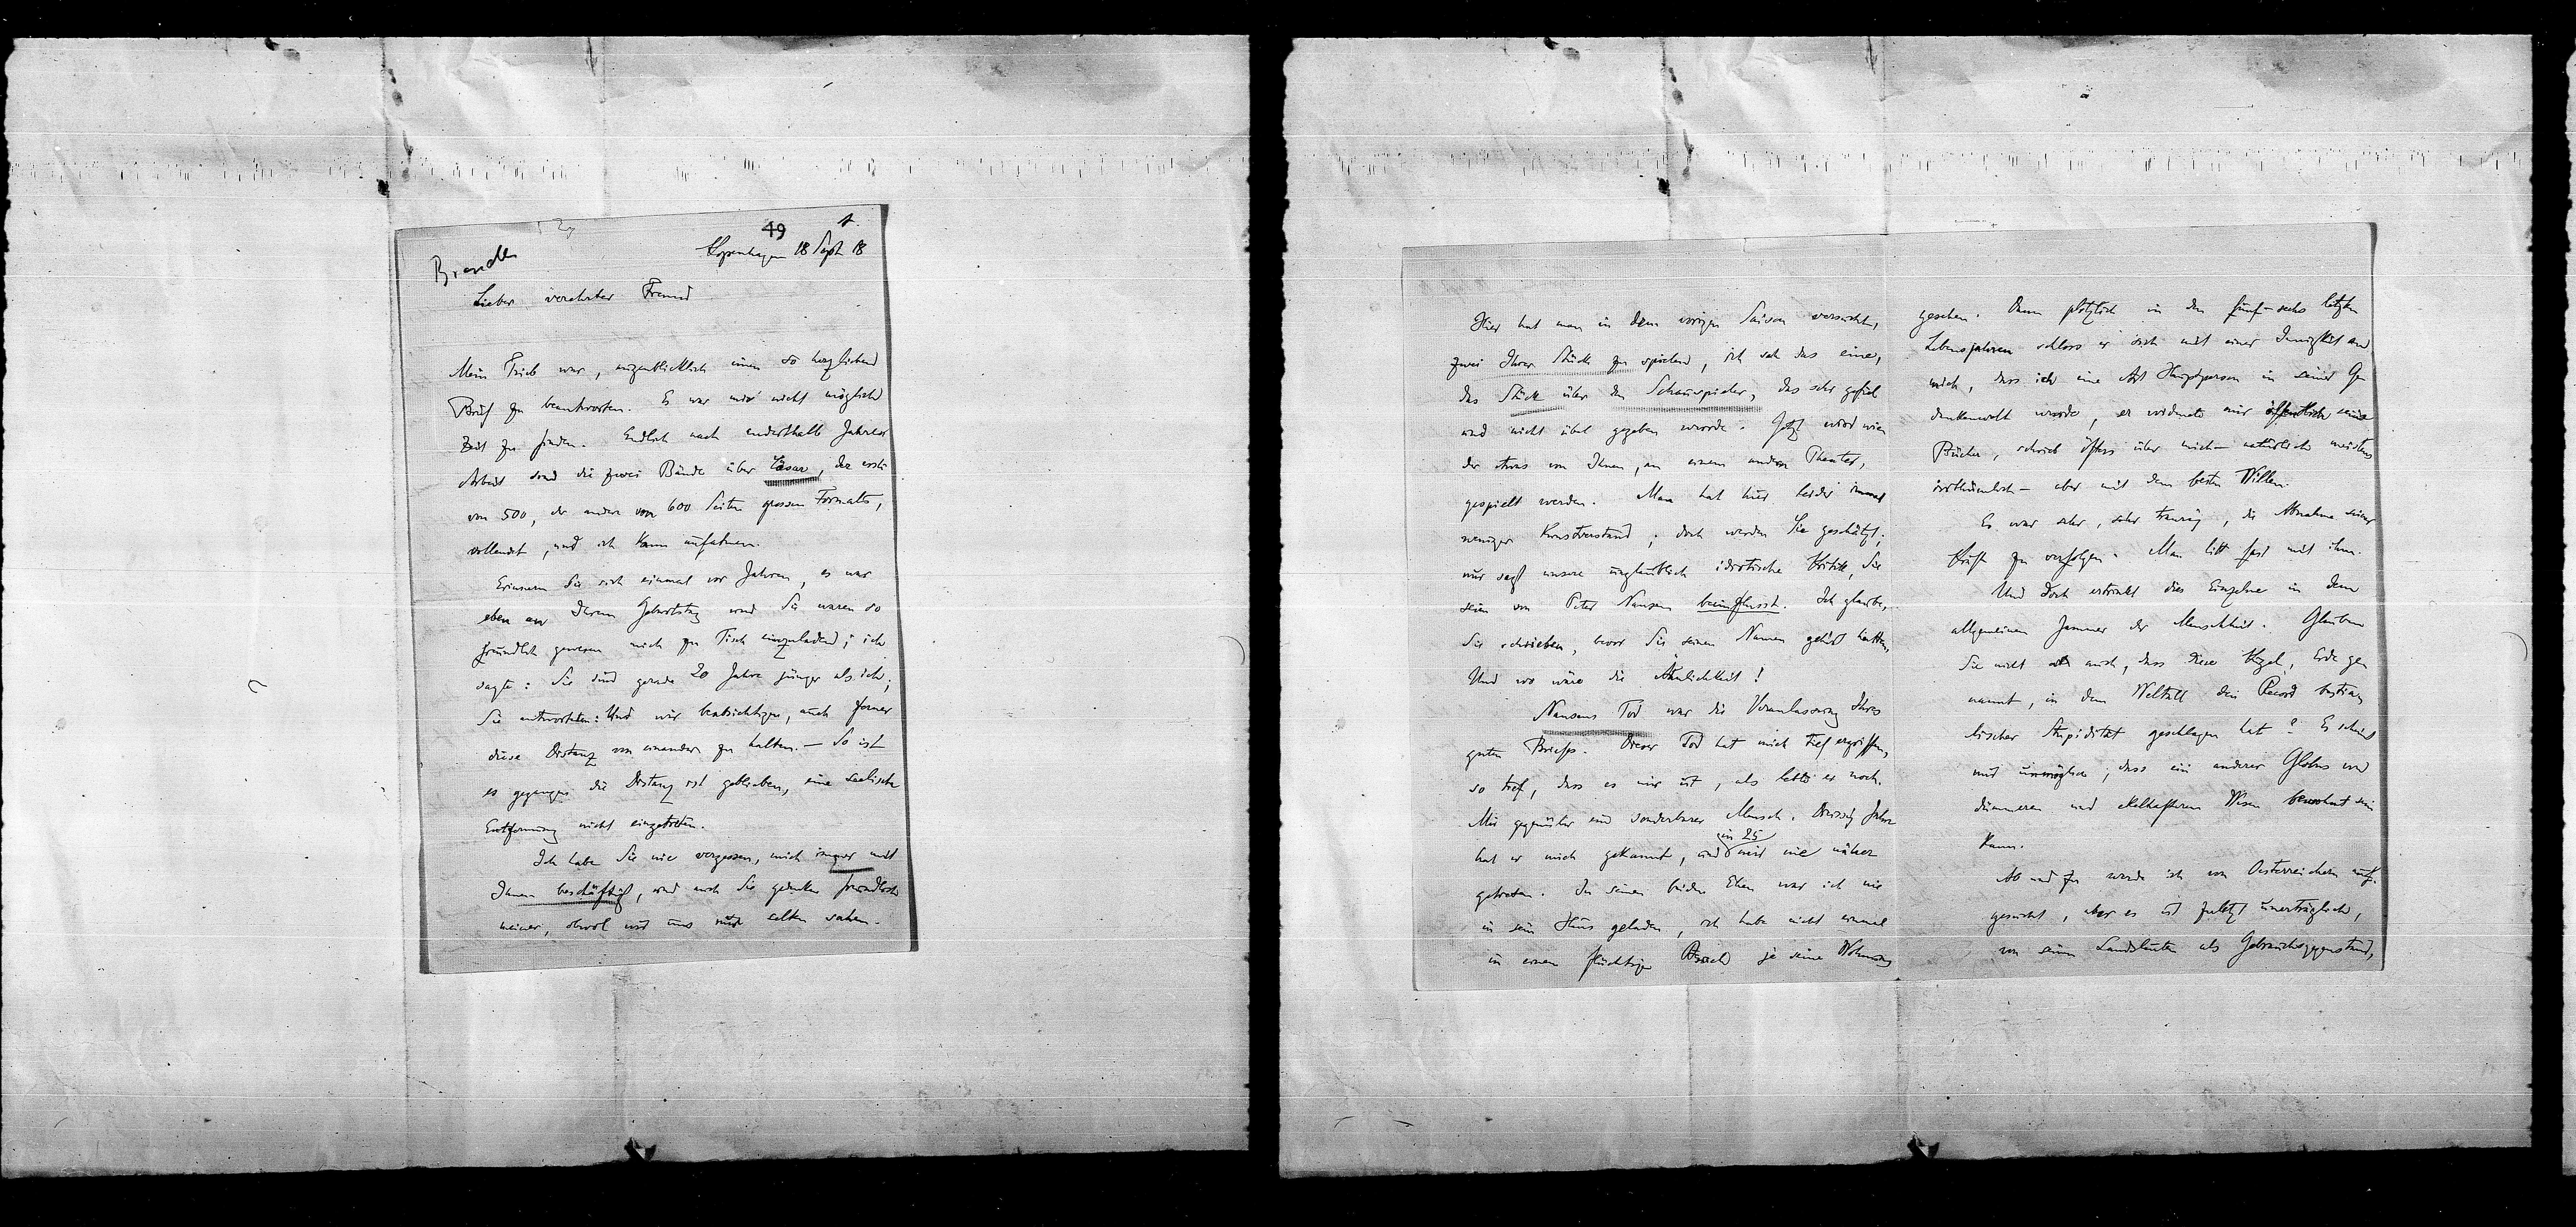 49
1.
Brandes
Kopenhagen 18 Sept 18
Lieber verehrter Freund
Mein Trieb war, augenblicklich einen so herzlichen
Brief zu beantworten. Es war mir nicht möglich
Zeit zu finden. Endlich nach anderthalb Jahren
Arbeit sind die zwei Bände über Cäsar, der erste
von 500, der andere von 600 Seiten grossen Formats,
vollendet, und ich kann aufatmen.
Erinnern Sie sich einmal vor Jahren, es war
eben an Ihrem Geburtstag und Sie waren so
freundlich gewesen mich zu Tisch einzuladen; ich
sagte: Sie sind gerade 20 Jahre jünger als ich;
Sie antworteten: Und wir beabsichtigen, auch ferner
diese Distanz von einander zu halten. — So ist
es gegangen die Distanz ist geblieben, eine seelische
Entfernung nicht eingetreten.
Ich habe Sie nie vergessen, mich immer mit
Ihnen beschäftigt, und auch Sie gedenken freundlich
meiner, obwol wir uns nur selten sahen.
Hier hat man in dem vorigen Saison versucht,
zwei Ihrer Stücke zu spielen, ich sah das eine,
das Stück über den Schauspieler, das sehr gefiel
und nicht übel gegeben wurde. Jetzt wird wie
der etwas von Ihnen, an einem andern Theater,
gespielt werden. Man hat hier leider immer
weniger Kunstverstand; doch werden Sie geschätzt;
nur sagt unsere unglaublich idiotische Kritik, Sie
seien von Peter Nansen beeinflusst. Ich glaube,
Sie schrieben, bevor Sie seinen Namen gehört hatten,
Und wo wäre die Ähnlichkeit!
Nansens Tod war die Veranlassung Ihres
guten Briefes. Dieser Tod hat mich tief ergriffen,
so tief, dass es mir ist, als lebte er noch.
Mir gegenüber ein sonderbarer Mensch. Dreissig Jahre
hat er mich gekannt, und in 25 mir nie näher
getreten. In seinen beiden Ehen war ich nie
in sein Haus geladen, ich habe nicht einmal
in einem flüchtigen Besuch je seine Wohnung
gesehen. Dann plötzlich in den fünf-sechs letzten
Lebensjahren schloss er sich mit einer Innigkeit an
mich, dass ich eine Art Hauptperson in seiner Ge
dankenwelt wurde, er widmete mir öffentlich seine
Bücher, schrieb öfters über mich — natürlich meistens
irrthümlich — aber mit dem besten Willen.
Es war sehr, sehr traurig, die Abnahme seiner
Kräfte zu verfolgen. Man litt fast mit ihm.
Und doch ertrinkt dies Einzelne in dem
allgemeinen Jammer der Menschheit. Glauben
Sie nicht auch, dass diese Kugel, Erde ge
nannt, in dem Weltall den Record bestia
lischer Stupidität geschlagen hat? Es scheint
mir unmöglich, dass ein anderer Globus von
dümmeren und ekelhafteren Wesen bewohnt sein
kann.
Ab und zu werde ich von Oesterreichern auf-
gesucht, aber es ist zuletzt unerträglich,
von seinen Landsleuten als Gebrauchsgegenstand,